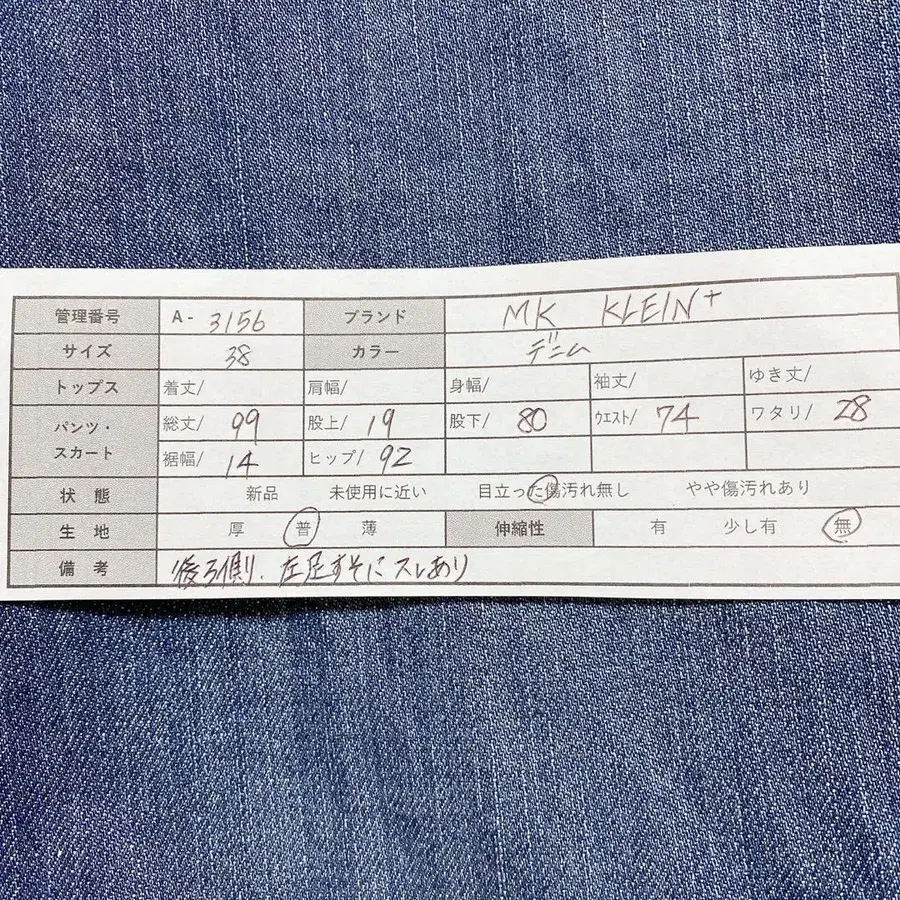 管理番号 A- 3156 ブランド MK KLEIN+
サイズ 38 カラー デニム
トップス 着丈/ 肩幅/ 身幅/ 袖丈/ ゆき丈/
パンツ・スカート 総丈/ 99 股上/ 19 股下/ 80 ウエスト/ 74 ワタリ/ 28
裾幅/ 14 ヒップ/ 92
状態 新品 未使用に近い 目立った傷汚れ無し やや傷汚れあり
生地 厚 普 薄 伸縮性 有 少し有 無
備考 後ろ側、左足すそにスレあり